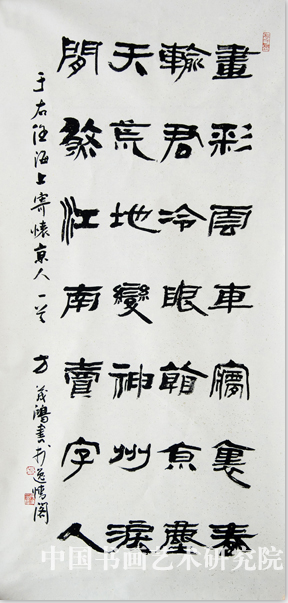 畫彩雲車夢裏春
輸君冷眼看京塵
天荒地變神州淚
閒煞江南賣字人
于右任海上寄懷京人一首 方茂鴻書於逸情閣
中国书画艺术研究院